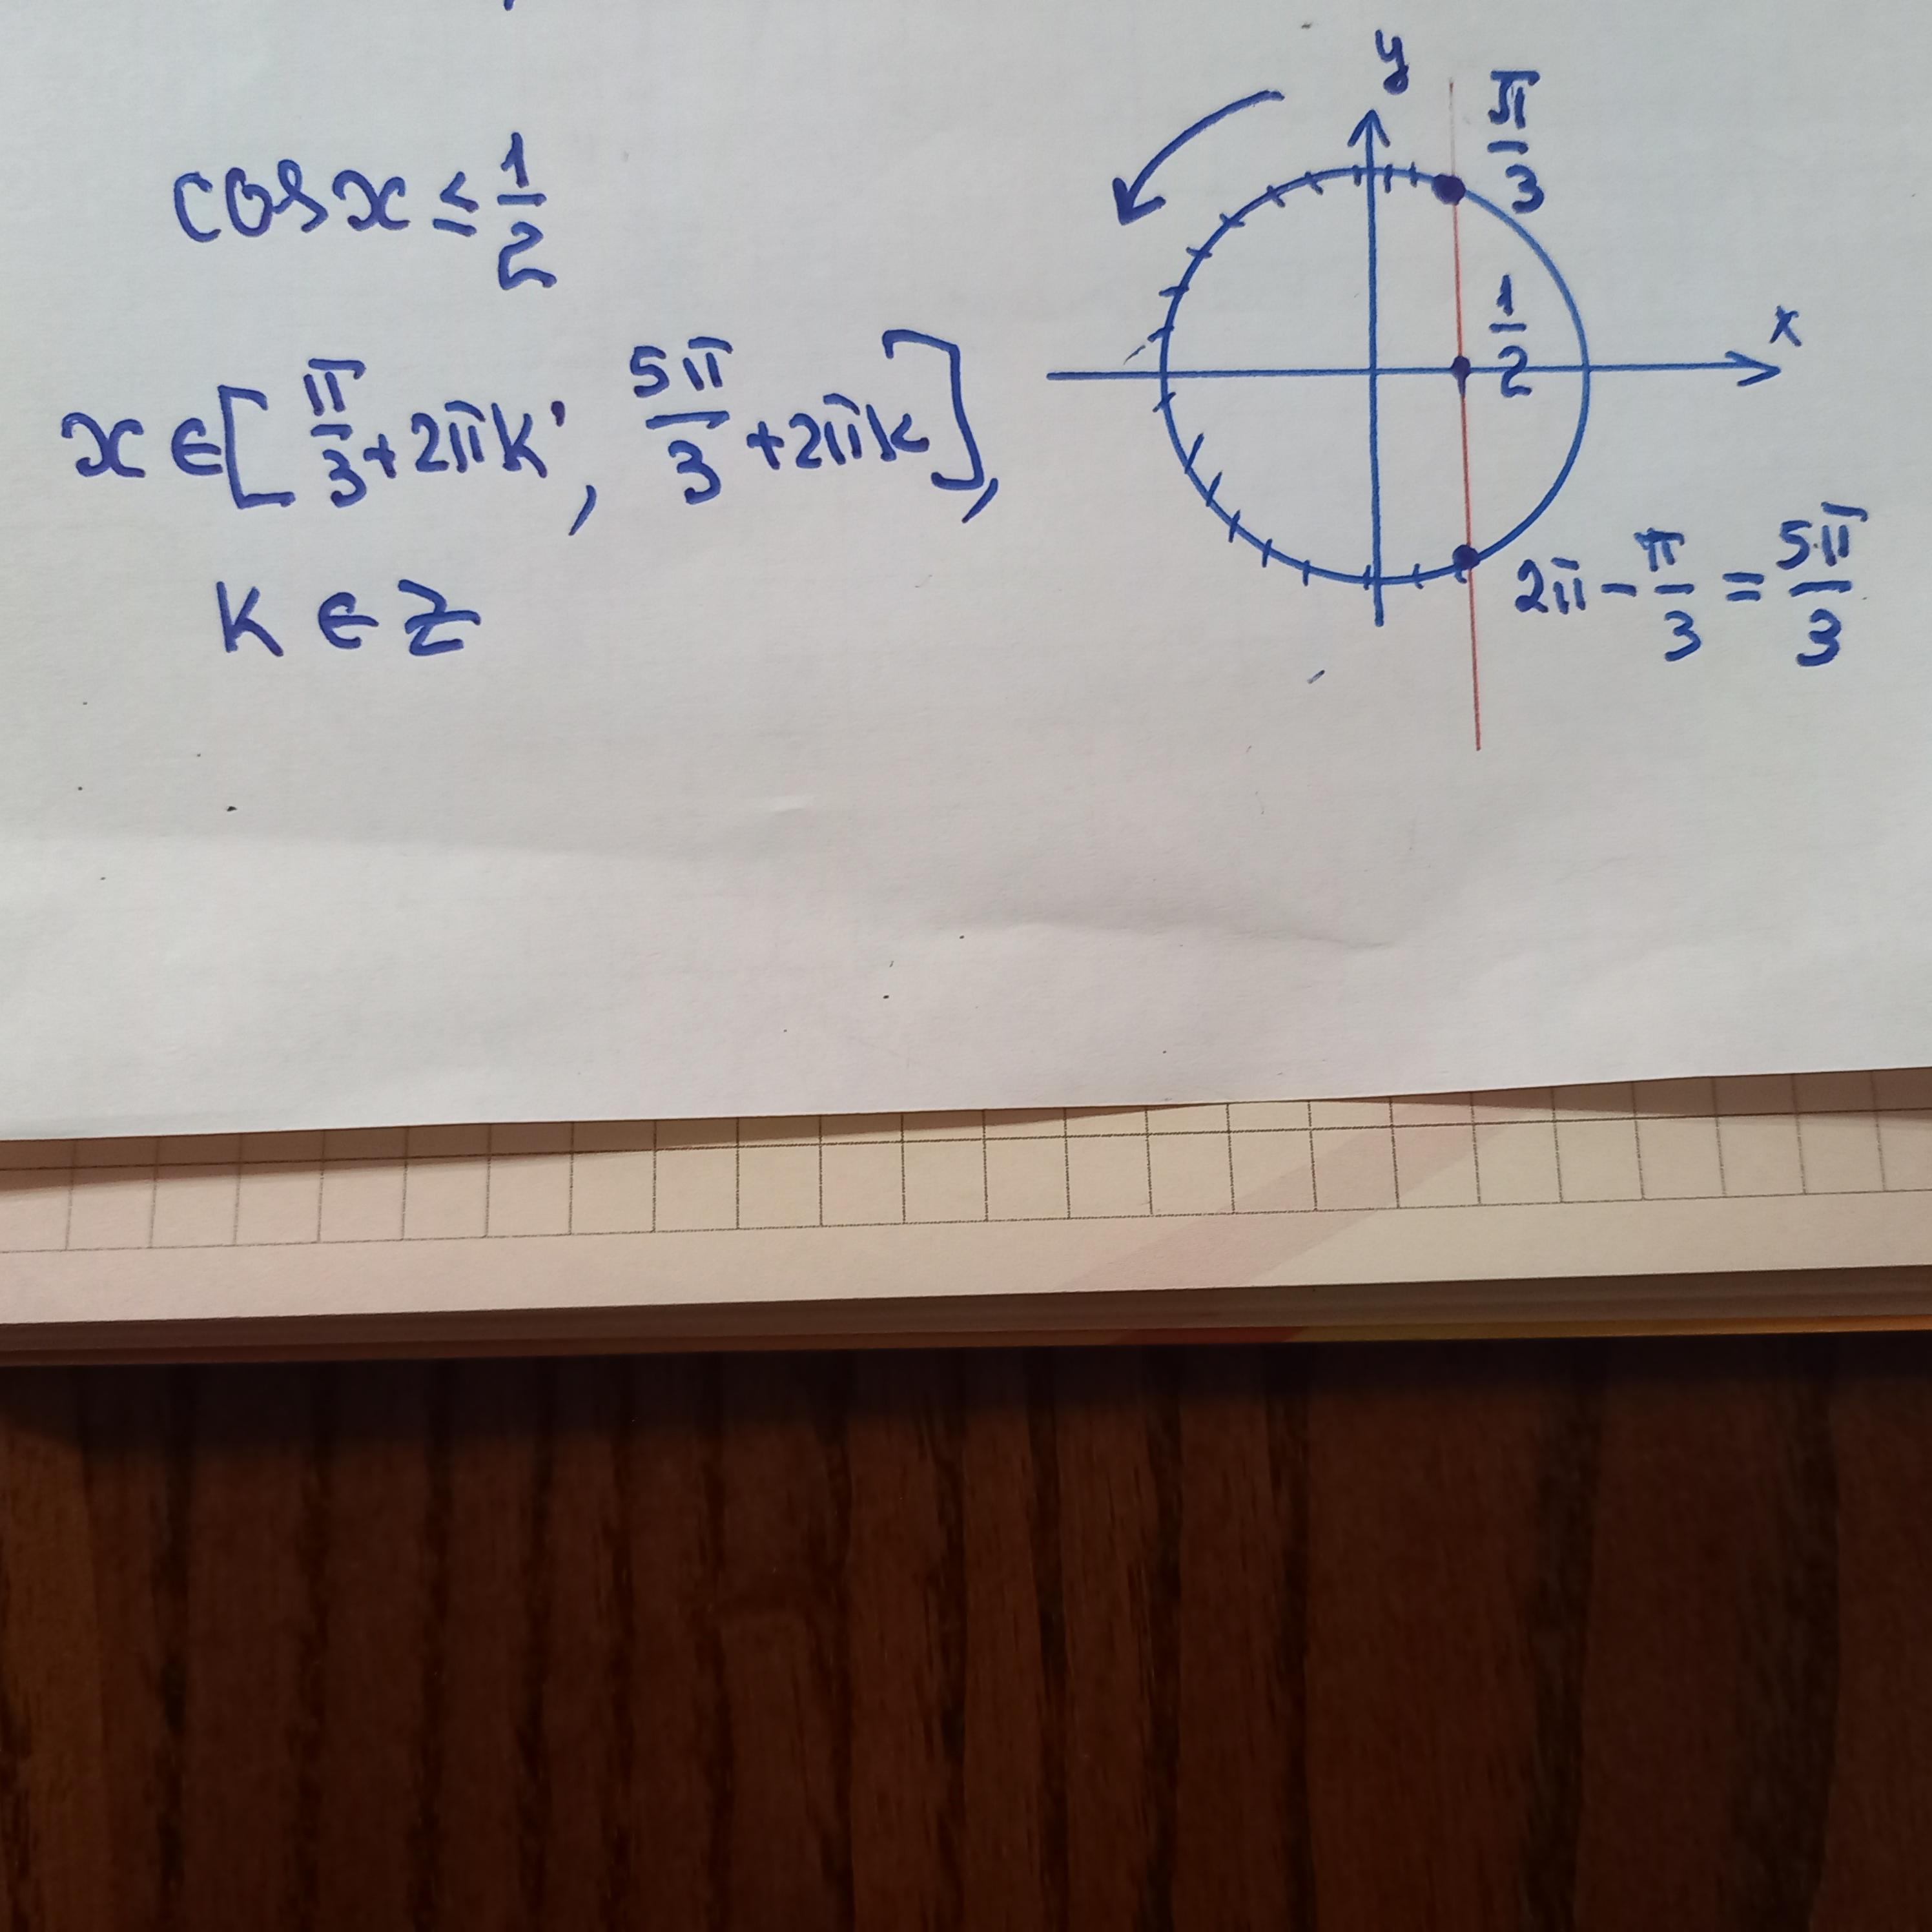 cos x ≤ 1/2
x ∈ [π/3 + 2πk; 5π/3 + 2πk],
k ∈ Z
y
π/3
1/2
x
2π - π/3 = 5π/3